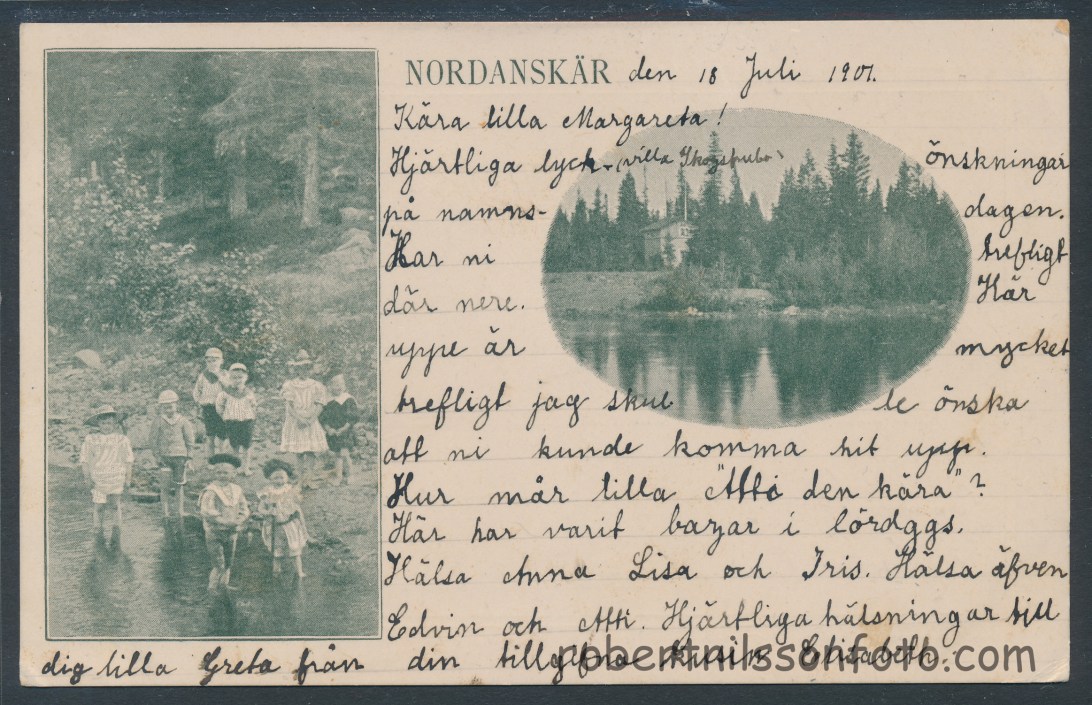 NORDANSKÄR den 18 Juli 1901.
Kära lilla Margareta!
Hjärtliga lyck- (villa Skogshubo) önskningar
på namns- dagen.
Har ni trefligt
där nere. Här
uppe är mycket
trefligt jag skul le önska
att ni kunde komma hit upp.
Hur mår lilla "Atti den kära"?
Här har varit bazar i lördggs.
Hälsa Anna Lisa och Iris. Hälsa äfven
Edvin och Atti. Hjärtliga hälsningar till
dig lilla Greta från din tillgifna kusin Elisabeth.
robertnilssonfoto.com